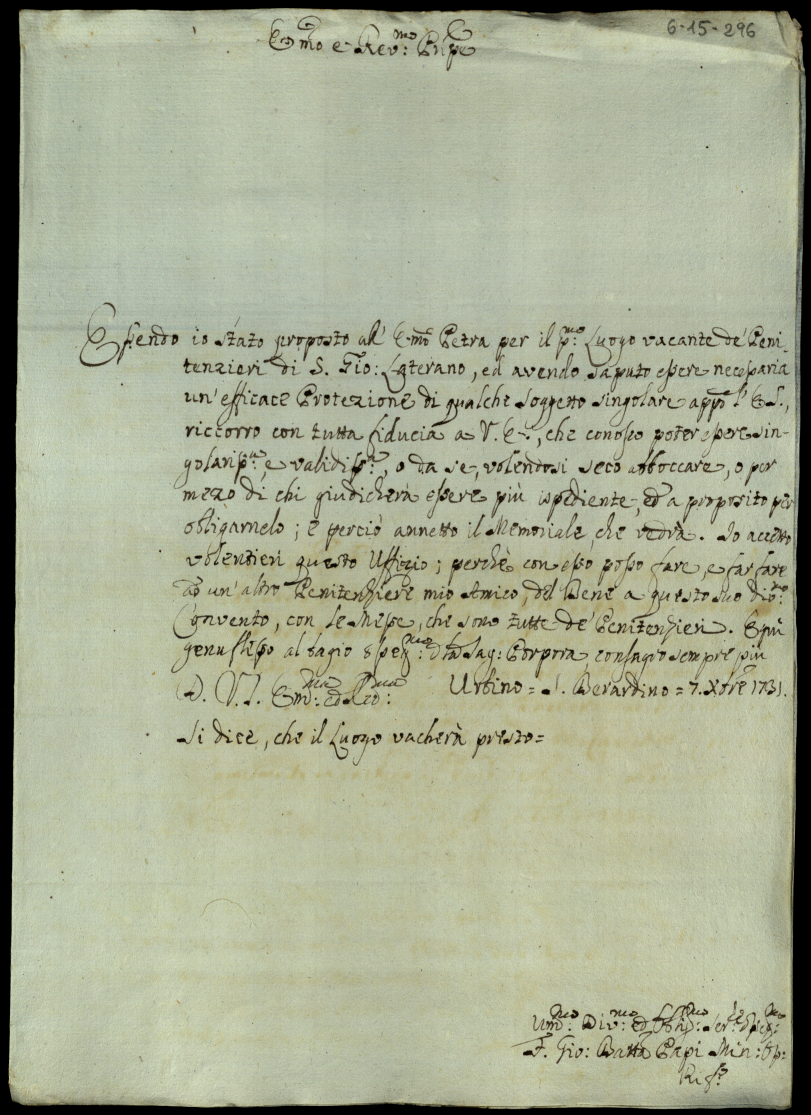 6-15-296
E.mo e Rev:mo Prñpe
Essendo io stato proposto all' E.mo Petra per il p:mo Luogo vacante de' Peni-
tenziori di S. Gio: Laterano, ed avendo saputo essere necessaria
un' efficace Protezione di qualche Soggetto singolare app:o l' E. S.,
riccorro con tutta fiducia a V. E., che conosco poter essere sin-
golariss:a, e validiss:a, o da se, volendosi seco abboccare, o per
mezo di chi giudicherà essere più ispediente, ed a proposito per
obligarnelo; e perciò annetto il Memoriale, che vedrà. Io accetto
volentieri questo Uffizio; perchè con esso posso fare, e far fare
ad un' altro Penitenziere mio Amico, del Bene a questo suo div:mo
Convento, con le Messe, che sono tutte de' Penitenzieri. E più
genuflesso al bagio della Sag: Porpora, consagro sempre più
D. V. S. Em:ma ed Rev:ma Urbino = S. Berardino = 7. Xbre 1731.
Si dice, che il Luogo vacherà presto =
Um:mo Div:mo ed Obbl:mo Ser:e
F. Gio: Batta Papi Min: Op:
Rif:o